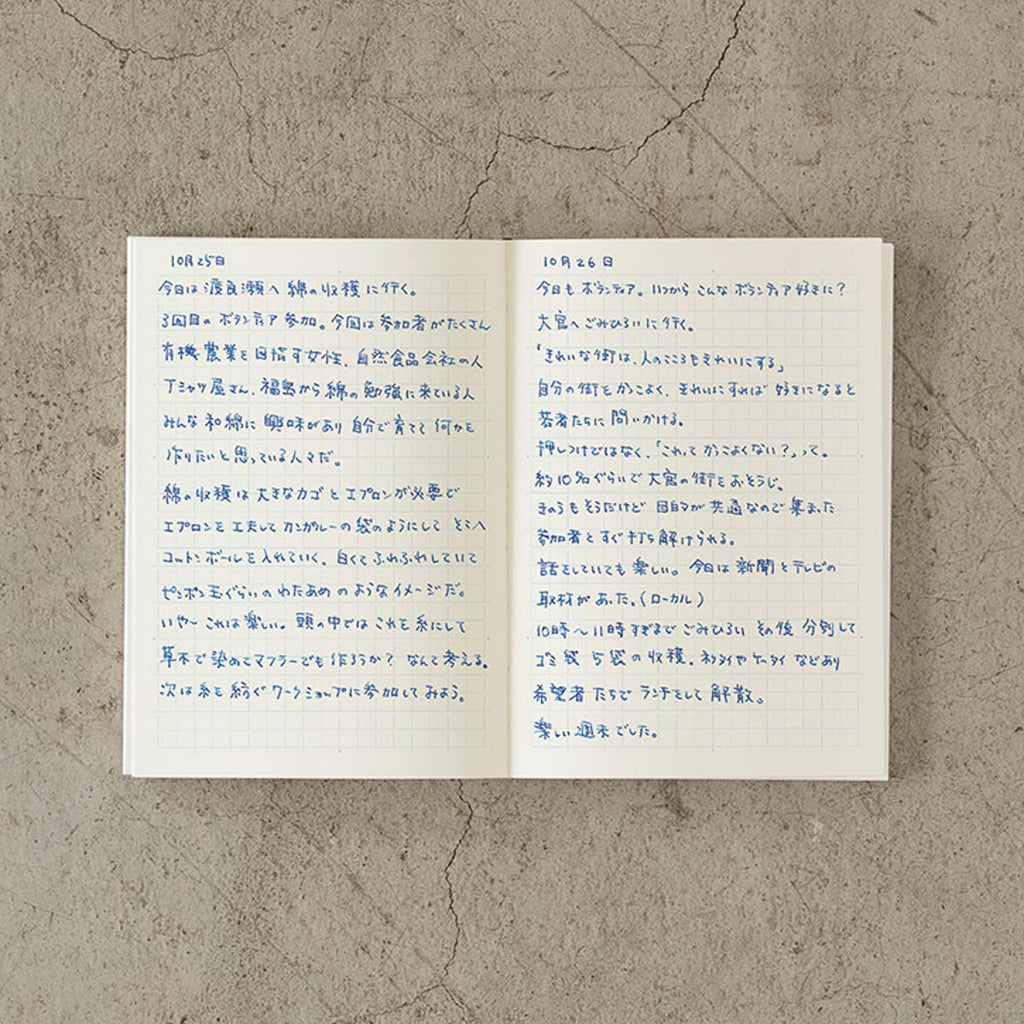 10月25日
今日は渡良瀬へ綿の収穫に行く。
3回目のボランティア参加。今回は参加者がたくさん
有機農業を目指す女性、自然食品会社の人
Tシャツ屋さん、福島から綿の勉強に来ている人
みんな和綿に興味があり自分で育てて何かを
作りたいと思っている人々だ。
綿の収穫は大きなカゴとエプロンが必要で
エプロンを工夫してカンガルーの袋のようにしてそこへ
コットンボールを入れていく。白くてふわふわしていて
ピンポン玉ぐらいのわたあめのようなイメージだ。
いや〜これは楽しい。頭の中ではこれを糸にして
草木で染めてマフラーでも作ろうか?なんて考える。
次は糸を紡ぐワークショップに参加してみよう。
10月26日
今日もボランティア。いつからこんなボランティア好きに?
大宮へごみひろいに行く。
「きれいな街は、人のこころもきれいにする」
自分の街をかっこよく、きれいにすれば好きになると
若者たちに問いかける。
押しつけではなく、「これってかっこよくない?」って。
約10名ぐらいで大宮の街をおそうじ。
きのうもそうだけど目的が共通なので集まった
参加者とすぐ打ち解けられる。
話をしていても楽しい。今日は新聞とテレビの
取材があった。(ローカル)
10時〜11時すぎまでごみひろいその後分別して
ゴミ袋5袋の収穫。ネクタイやケータイなどあり
希望者たちでランチをして解散。
楽しい週末でした。